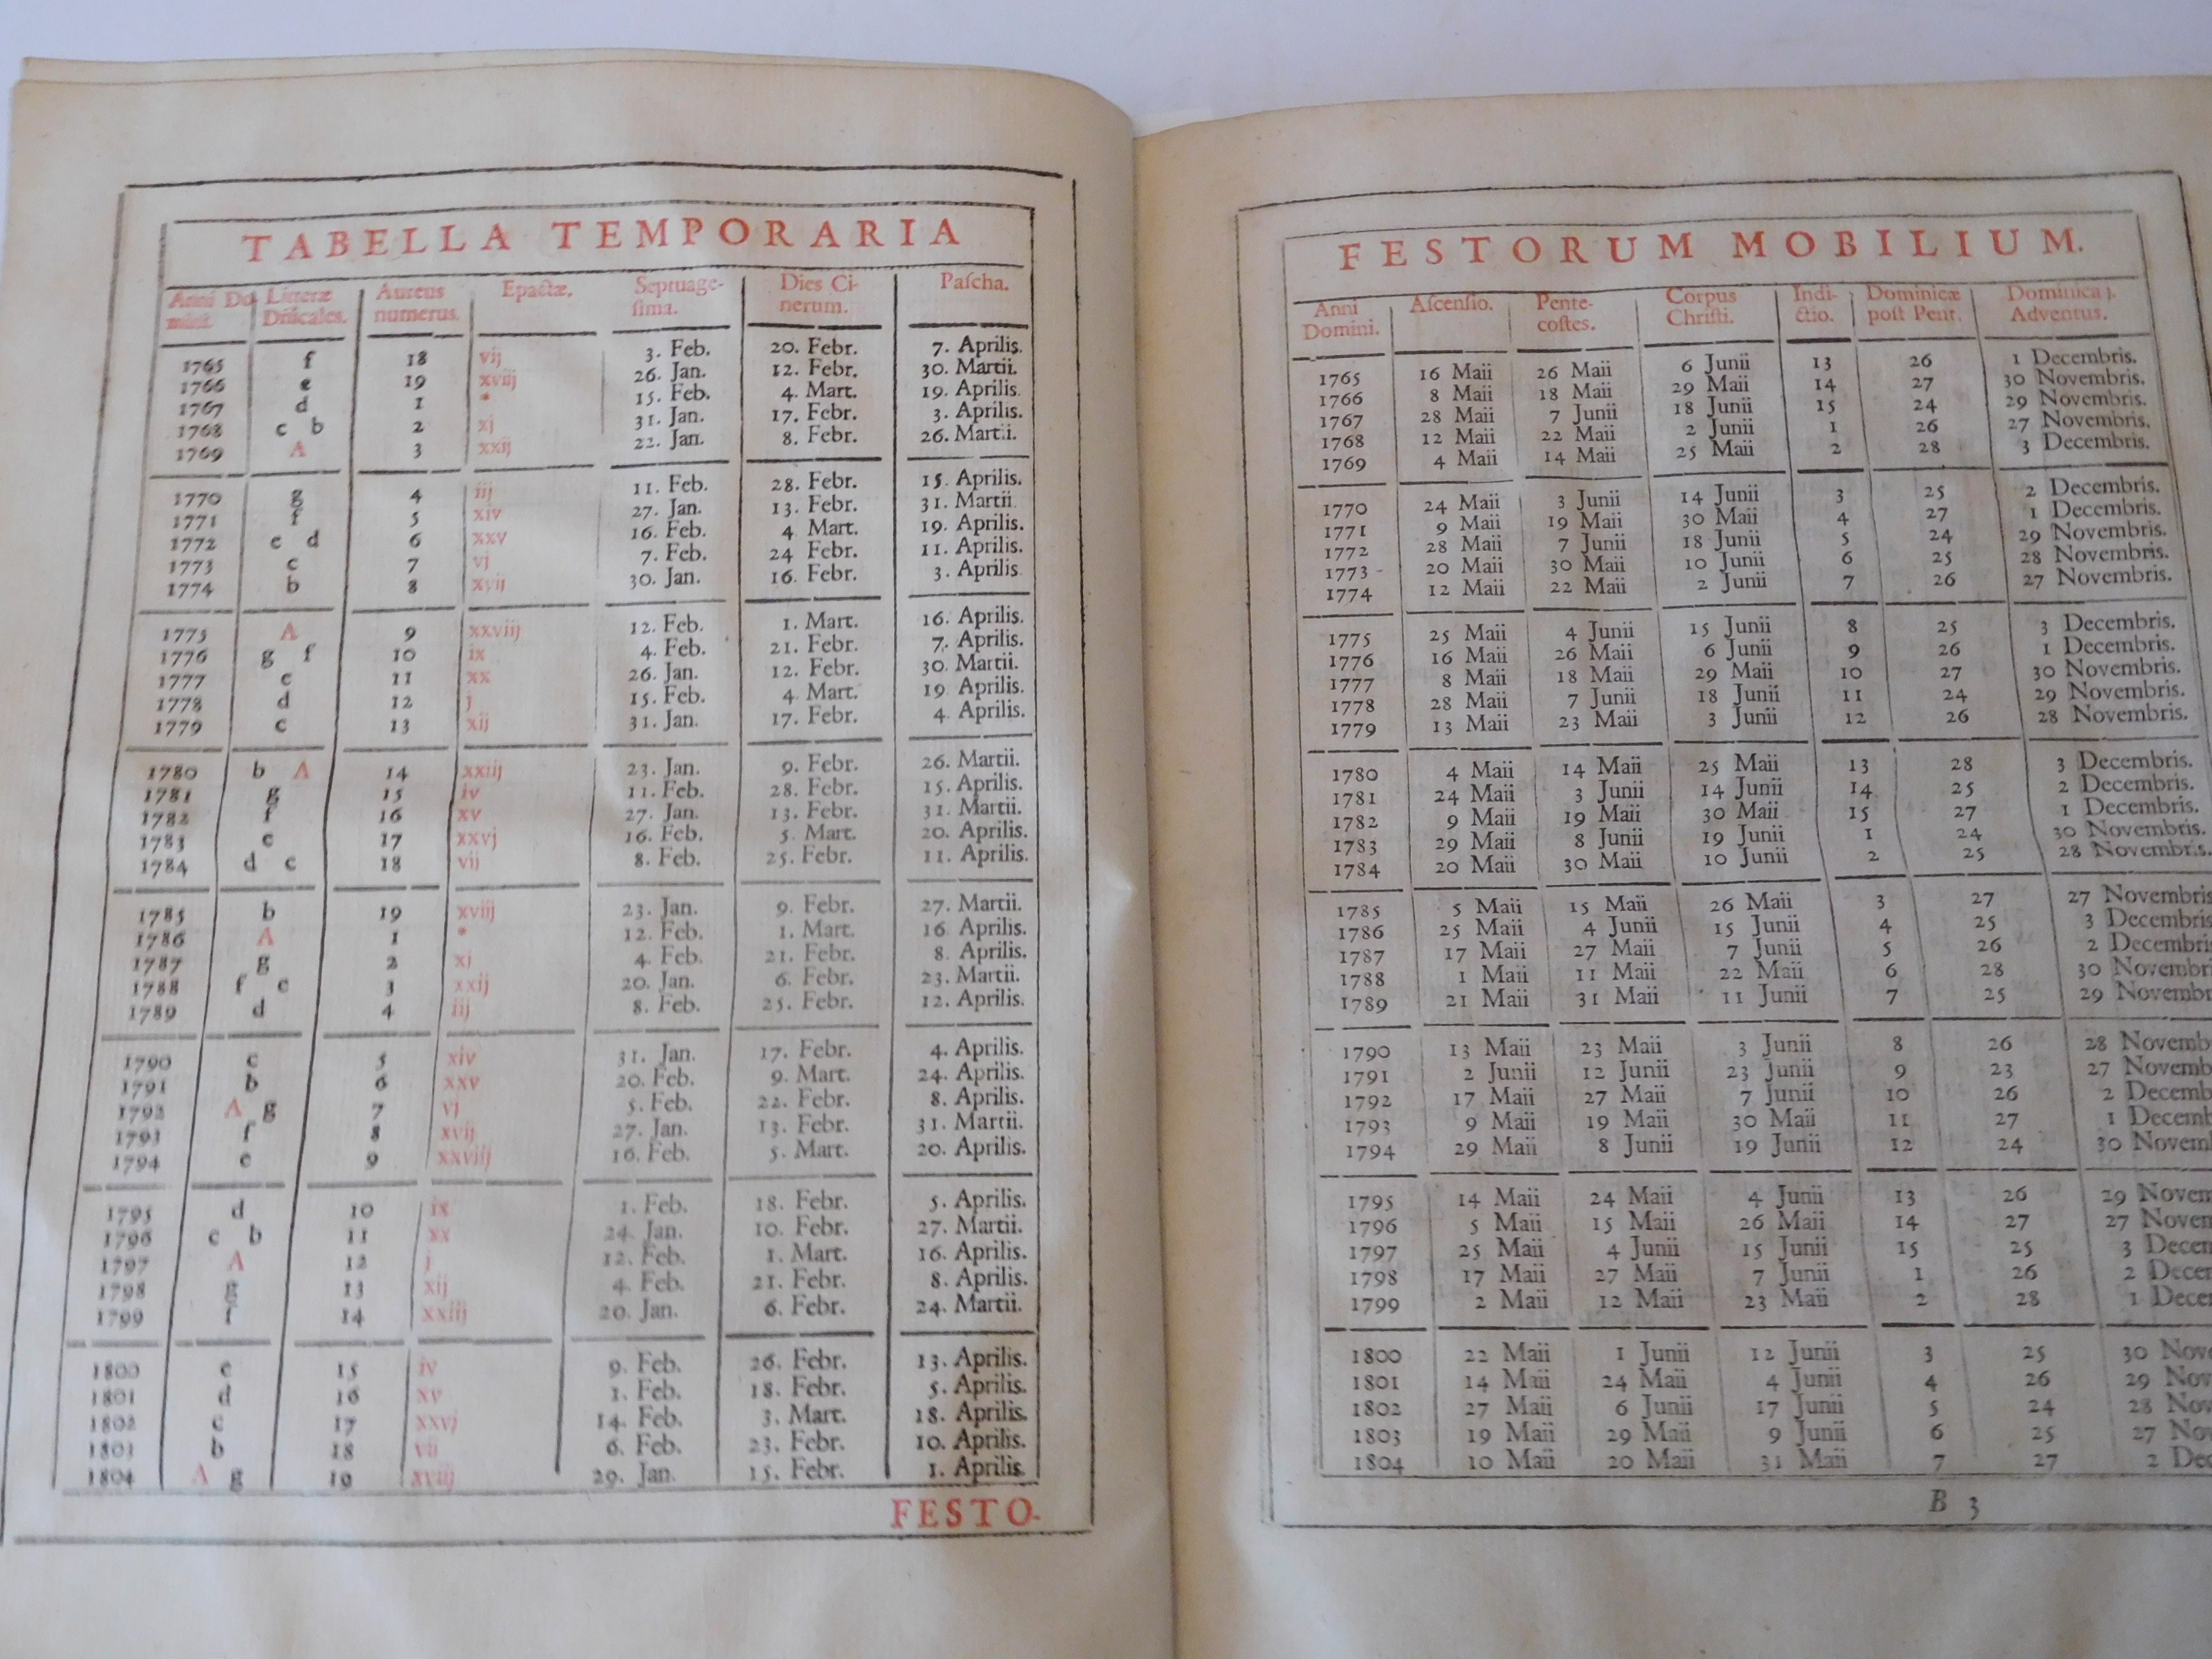 TABELLA TEMPORARIA
Anni Do- Litteræ Aureus Epactæ. Septuage- Dies Ci- Pascha.
mini. Dñicales. numerus. sima. nerum.
1765 f 18 vij 3. Feb. 20. Febr. 7. Aprilis.
1766 e 19 xviij 26. Jan. 12. Febr. 30. Martii.
1767 d 1 * 15. Feb. 4. Mart. 19. Aprilis.
1768 c b 2 xj 31. Jan. 17. Febr. 3. Aprilis.
1769 A 3 xxij 22. Jan. 8. Febr. 26. Martii.
1770 g 4 iij 11. Feb. 28. Febr. 15. Aprilis.
1771 f 5 xiv 27. Jan. 13. Febr. 31. Martii.
1772 e d 6 xxv 16. Feb. 4. Mart. 19. Aprilis.
1773 c 7 vj 7. Feb. 24 Febr. 11. Aprilis.
1774 b 8 xvij 30. Jan. 16. Febr. 3. Aprilis
1775 A 9 xxviij 12. Feb. 1. Mart. 16. Aprilis.
1776 g f 10 ix 4. Feb. 21. Febr. 7. Aprilis.
1777 e 11 xx 26. Jan. 12. Febr. 30. Martii.
1778 d 12 j 15. Feb. 4. Mart. 19. Aprilis.
1779 c 13 xij 31. Jan. 17. Febr. 4. Aprilis.
1780 b A 14 xxiij 23. Jan. 9. Febr. 26. Martii.
1781 g 15 iv 11. Feb. 28. Febr. 15. Aprilis.
1782 f 16 xv 27. Jan. 13. Febr. 31. Martii.
1783 e 17 xxvj 16. Feb. 5. Mart. 20. Aprilis.
1784 d c 18 vij 8. Feb. 25. Febr. 11. Aprilis.
1785 b 19 xviij 23. Jan. 9. Febr. 27. Martii.
1786 A 1 * 12. Feb. 1. Mart. 16. Aprilis.
1787 g 2 xj 4. Feb. 21. Febr. 8. Aprilis.
1788 f e 3 xxij 20. Jan. 6. Febr. 23. Martii.
1789 d 4 iij 8. Feb. 25. Febr. 12. Aprilis.
1790 c 5 xiv 31. Jan. 17. Febr. 4. Aprilis.
1791 b 6 xxv 20. Feb. 9. Mart. 24. Aprilis.
1792 A g 7 vj 5. Feb. 22. Febr. 8. Aprilis.
1793 f 8 xvij 27. Jan. 13. Febr. 31. Martii.
1794 e 9 xxviij 16. Feb. 5. Mart. 20. Aprilis.
1795 d 10 ix 1. Feb. 18. Febr. 5. Aprilis.
1796 c b 11 xx 24. Jan. 10. Febr. 27. Martii.
1797 A 12 j 12. Feb. 1. Mart. 16. Aprilis.
1798 g 13 xij 4. Feb. 21. Febr. 8. Aprilis.
1799 f 14 xxiij 20. Jan. 6. Febr. 24. Martii.
1800 e 15 iv 9. Feb. 26. Febr. 13. Aprilis.
1801 d 16 xv 1. Feb. 18. Febr. 5. Aprilis.
1802 c 17 xxvj 14. Feb. 3. Mart. 18. Aprilis.
1803 b 18 vij 6. Feb. 23. Febr. 10. Aprilis.
1804 A g 19 xviij 29. Jan. 15. Febr. 1. Aprilis.
FESTO-
FESTORUM MOBILIUM.
Anni Ascensio. Pente- Corpus Indi- Dominicæ Dominica j.
Domini. costes. Christi. ctio. post Pent. Adventus.
1765 16 Maii 26 Maii 6 Junii 13 26 1 Decembris.
1766 8 Maii 18 Maii 29 Maii 14 27 30 Novembris.
1767 28 Maii 7 Junii 18 Junii 15 24 29 Novembris.
1768 12 Maii 22 Maii 2 Junii 1 26 27 Novembris.
1769 4 Maii 14 Maii 25 Maii 2 28 3 Decembris.
1770 24 Maii 3 Junii 14 Junii 3 25 2 Decembris.
1771 9 Maii 19 Maii 30 Maii 4 27 1 Decembris.
1772 28 Maii 7 Junii 18 Junii 5 24 29 Novembris.
1773 20 Maii 30 Maii 10 Junii 6 25 28 Novembris.
1774 12 Maii 22 Maii 2 Junii 7 26 27 Novembris.
1775 25 Maii 4 Junii 15 Junii 8 25 3 Decembris.
1776 16 Maii 26 Maii 6 Junii 9 26 1 Decembris.
1777 8 Maii 18 Maii 29 Maii 10 27 30 Novembris.
1778 28 Maii 7 Junii 18 Junii 11 24 29 Novembris.
1779 13 Maii 23 Maii 3 Junii 12 26 28 Novembris.
1780 4 Maii 14 Maii 25 Maii 13 28 3 Decembris.
1781 24 Maii 3 Junii 14 Junii 14 25 2 Decembris.
1782 9 Maii 19 Maii 30 Maii 15 27 1 Decembris.
1783 29 Maii 8 Junii 19 Junii 1 24 30 Novembris.
1784 20 Maii 30 Maii 10 Junii 2 25 28 Novembris.
1785 5 Maii 15 Maii 26 Maii 3 27 27 Novembris
1786 25 Maii 4 Junii 15 Junii 4 25 3 Decembris
1787 17 Maii 27 Maii 7 Junii 5 26 2 Decembri
1788 1 Maii 11 Maii 22 Maii 6 28 30 Novembri
1789 21 Maii 31 Maii 11 Junii 7 25 29 Novembr
1790 13 Maii 23 Maii 3 Junii 8 26 28 Novemb
1791 2 Junii 12 Junii 23 Junii 9 23 27 Novemb
1792 17 Maii 27 Maii 7 Junii 10 26 2 Decemb
1793 9 Maii 19 Maii 30 Maii 11 27 1 Decemb
1794 29 Maii 8 Junii 19 Junii 12 24 30 Novem
1795 14 Maii 24 Maii 4 Junii 13 26 29 Novem
1796 5 Maii 15 Maii 26 Maii 14 27 27 Noven
1797 25 Maii 4 Junii 15 Junii 15 25 3 Decen
1798 17 Maii 27 Maii 7 Junii 1 26 2 Decer
1799 2 Maii 12 Maii 23 Maii 2 28 1 Decer
1800 22 Maii 1 Junii 12 Junii 3 25 30 Nove
1801 14 Maii 24 Maii 4 Junii 4 26 29 Nov
1802 27 Maii 6 Junii 17 Junii 5 24 28 Nov
1803 19 Maii 29 Maii 9 Junii 6 25 27 Nov
1804 10 Maii 20 Maii 31 Maii 7 27 2 Dec
B 3